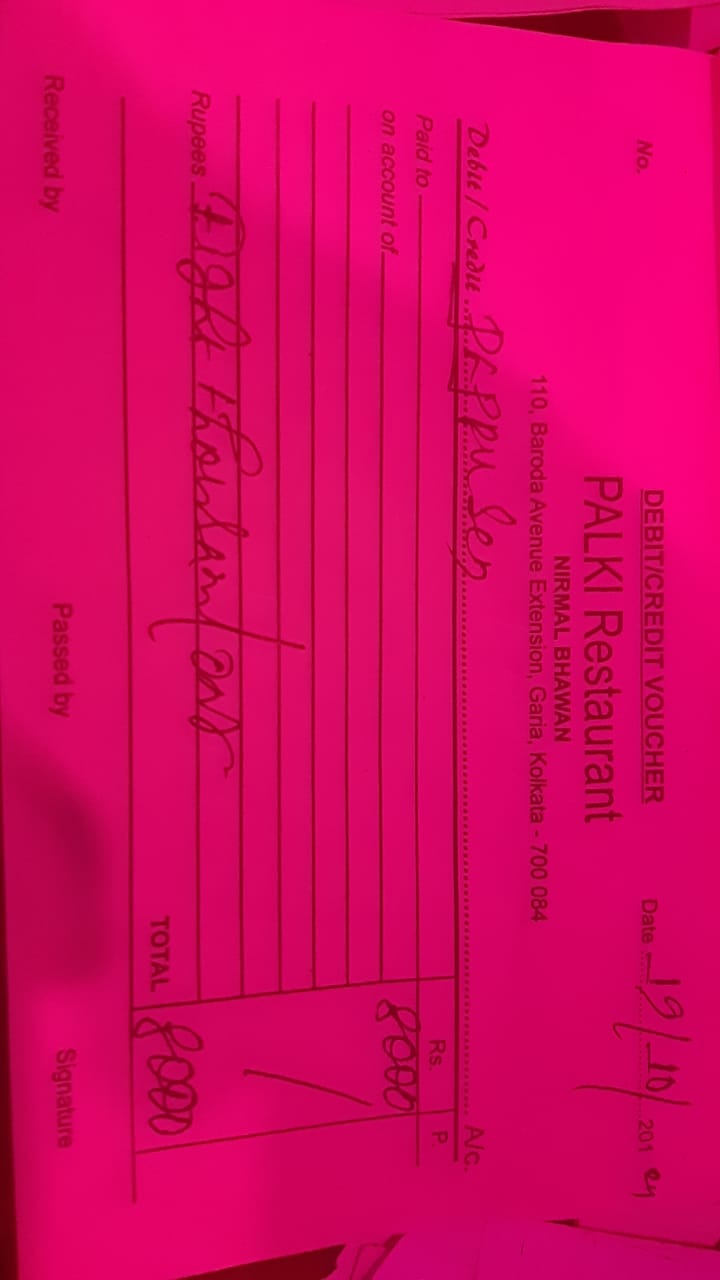 DEBIT/CREDIT VOUCHER
No. Date 19/10/ 201 24
PALKI Restaurant
NIRMAL BHAWAN
110, Baroda Avenue Extension, Garia, Kolkata - 700 084
Debit / Credit Pappu Sen A/c.
Paid to Rs. P.
on account of 8000
Rupees Eight thousand only
TOTAL 8000
Received by Passed by Signature